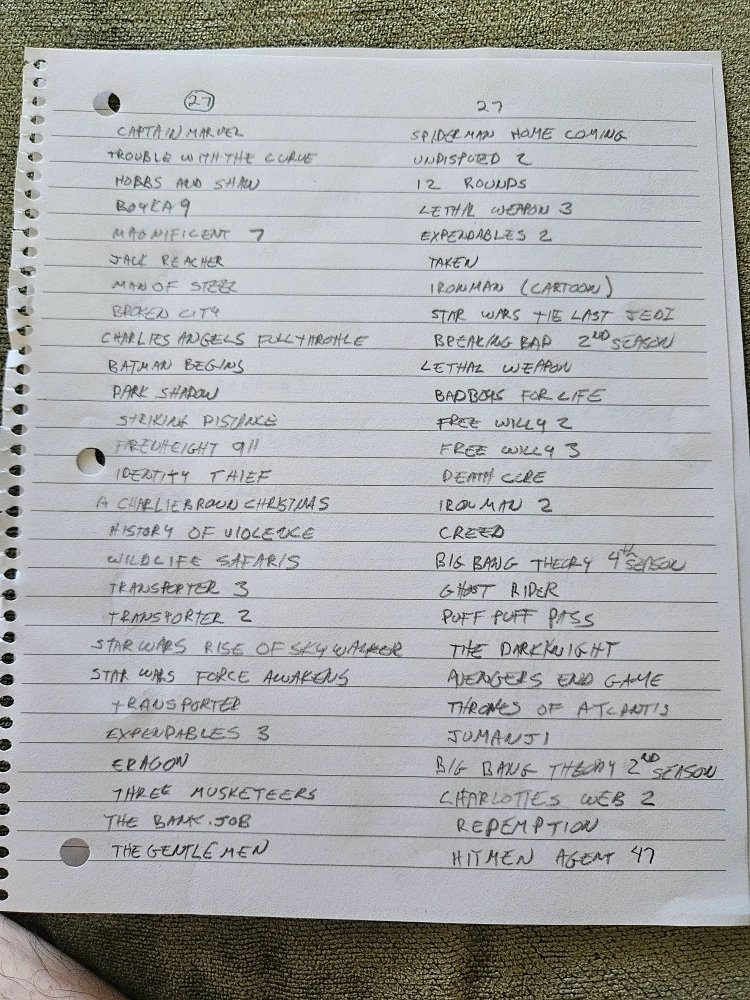 27
CAPTAIN MARVEL
TROUBLE WITH THE CURVE
HOBBS AND SHAW
BOYKA 9
MAGNIFICENT 7
JACK REACHER
MAN OF STEEL
BROKEN CITY
CHARLIES ANGELS FULLTHROTTLE
BATMAN BEGINS
DARK SHADOW
STRIKING DISTANCE
911
IDENTITY THIEF
A CHARLIE BROWN CHRISTMAS
HISTORY OF VIOLENCE
WILDLIFE SAFARIS
TRANSPORTER 3
TRANSPORTER 2
STAR WARS RISE OF SKY WALKER
STAR WARS FORCE AWAKENS
TRANSPORTER
EXPENDABLES 3
ERAGON
THREE MUSKETEERS
THE BANK JOB
THE GENTLEMEN
27
SPIDERMAN HOME COMING
UNDISPUTED 2
12 ROUNDS
LETHAL WEAPON 3
EXPENDABLES 2
TAKEN
IRONMAN (CARTOON)
STAR WARS THE LAST JEDI
BREAKING BAD 2ND SEASON
LETHAL WEAPON
BADBOYS FOR LIFE
FREE WILLY 2
FREE WILLY 3
DEATH CURE
IRON MAN 2
CREED
BIG BANG THEORY 4th SEASON
GHOST RIDER
PUFF PUFF PASS
THE DARKKNIGHT
AVENGERS END GAME
THRONES OF ATLANTIS
JUMANJI
BIG BANG THEORY 2ND SEASON
CHARLOTTES WEB 2
REDEMPTION
HITMEN AGENT 47